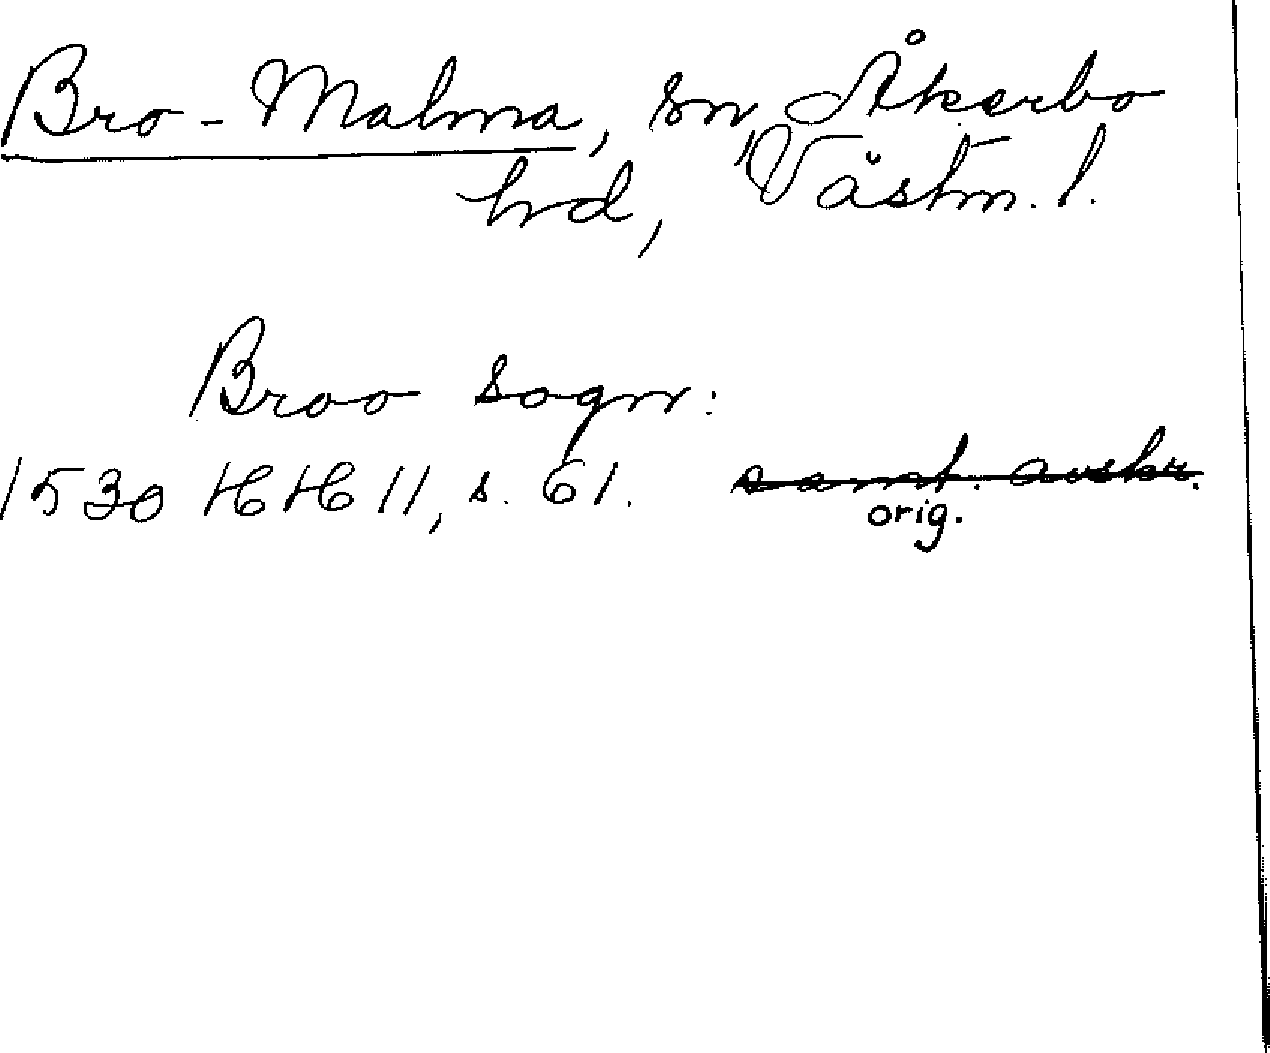 Bro-Malma, sn, Åkerbo
hd, Västm. l.
Broo sogn:
1530 HH 11, s. 61. samt. avskr.
orig.